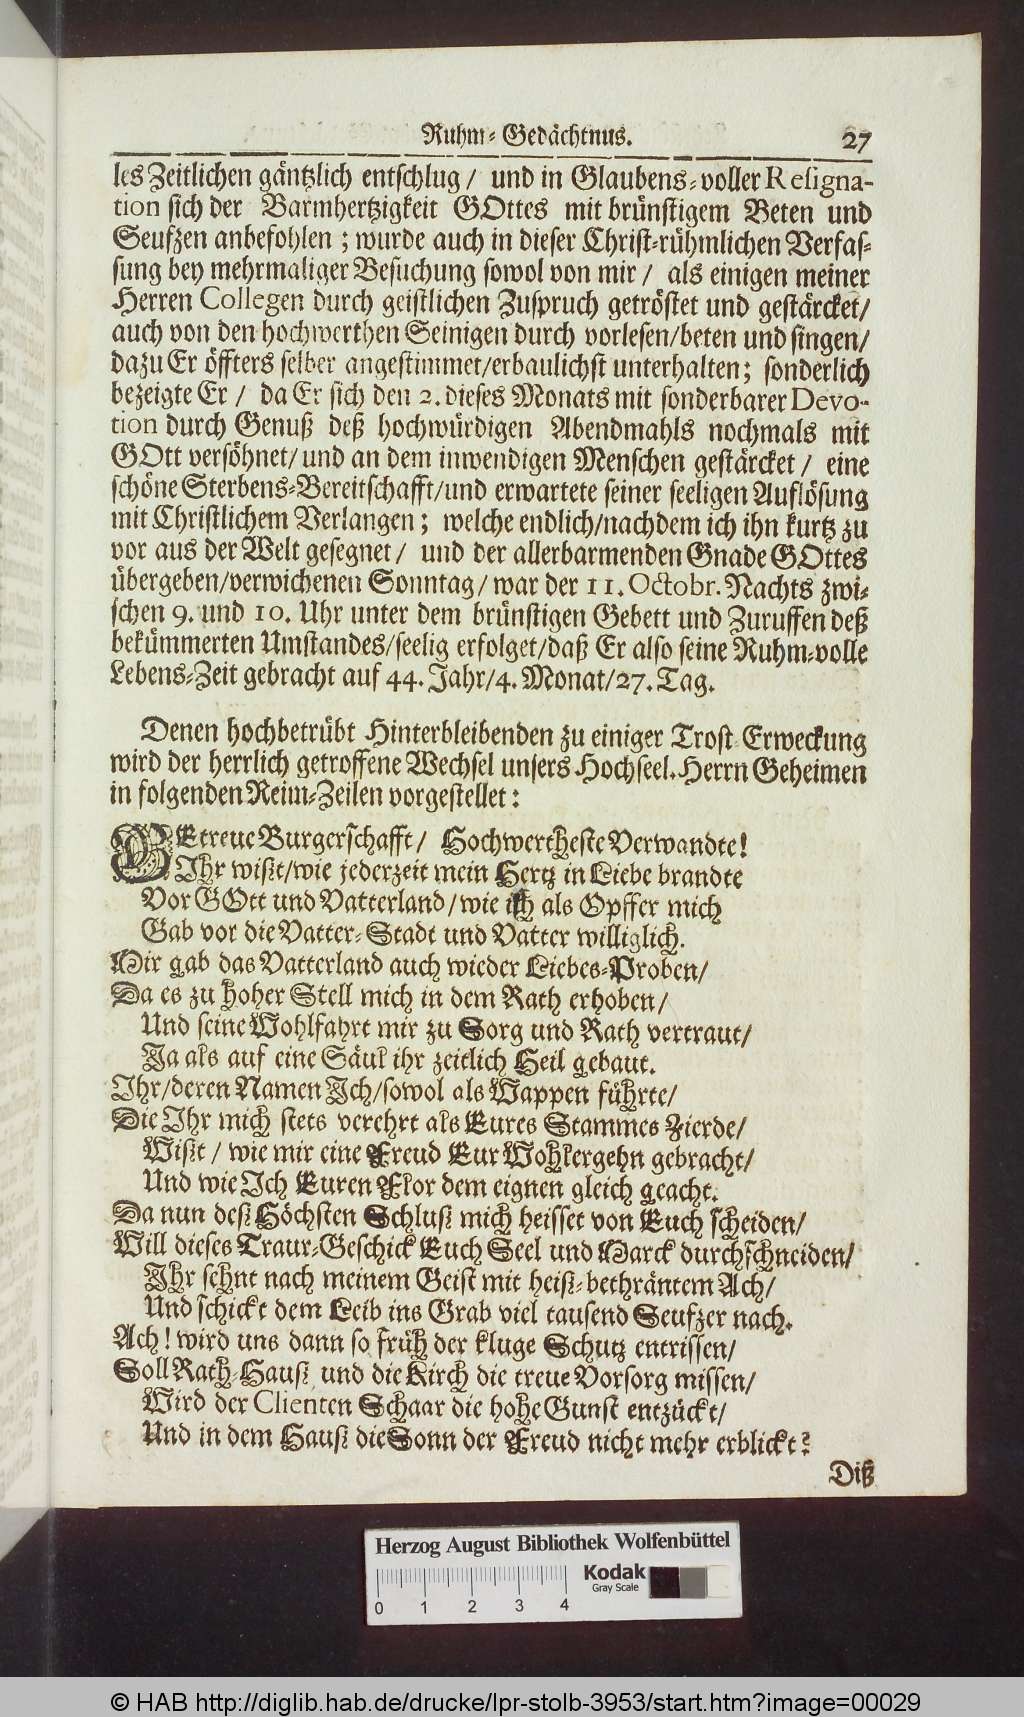 Ruhm-Gedächtnus. 27
les Zeitlichen gäntzlich entschlug/ und in Glaubens-voller Resigna-
tion sich der Barmhertzigkeit GOttes mit brünstigem Beten und
Seufzen anbefohlen; wurde auch in dieser Christ-rühmlichen Verfas-
sung bey mehrmaliger Besuchung sowol von mir/ als einigen meiner
Herren Collegen durch geistlichen Zuspruch getröstet und gestärcket/
auch von den hochwerthen Seinigen durch vorlesen/beten und singen/
dazu Er öffters selber angestimmet/erbaulichst unterhalten; sonderlich
bezeigte Er/ da Er sich den 2. dieses Monats mit sonderbarer Devo-
tion durch Genuß deß hochwürdigen Abendmahls nochmals mit
GOtt versöhnet/und an dem inwendigen Menschen gestärcket/ eine
schöne Sterbens-Bereitschafft/und erwartete seiner seeligen Auflösung
mit Christlichem Verlangen; welche endlich/nachdem ich ihn kurtz zu
vor aus der Welt gesegnet/ und der allerbarmenden Gnade GOttes
übergeben/verwichenen Sonntag/war der 11. Octobr. Nachts zwi-
schen 9. und 10. Uhr unter dem brünstigen Gebett und Zuruffen deß
bekümmerten Umstandes/seelig erfolget/daß Er also seine Ruhm-volle
Lebens-Zeit gebracht auf 44. Jahr/4. Monat/27. Tag.
Denen hochbetrübt Hinterbleibenden zu einiger Trost-Erweckung
wird der herrlich getroffene Wechsel unsers Hochseel. Herrn Geheimen
in folgenden Reim-Zeilen vorgestellet:
GEtreue Burgerschafft/ Hochwertheste Verwandte!
Ihr wißt/wie jederzeit mein Hertz in Liebe brandte
Vor GOtt und Vatterland/wie ich als Opffer mich
Gab vor die Vatter-Stadt und Vatter williglich.
Mir gab das Vatterland auch wieder Liebes-Proben/
Da es zu hoher Stell mich in dem Rath erhoben/
Und seine Wohlfahrt mir zu Sorg und Rath vertraut/
Ja als auf eine Säul ihr zeitlich Heil gebaut.
Ihr/deren Namen Ich/sowol als Wappen führte/
Die Ihr mich stets verehrt als Eures Stammes Zierde/
Wißt/ wie mir eine Freud Eur Wohlergehn gebracht/
Und wie Ich Euren Flor dem eignen gleich geacht.
Da nun deß Höchsten Schluß mich heisset von Euch scheiden/
Will dieses Traur-Geschick Euch Seel und Marck durchschneiden/
Ihr sehnt nach meinem Geist mit heiß-bethräntem Ach/
Und schickt dem Leib ins Grab viel tausend Seufzer nach.
Ach! wird uns dann so früh der kluge Schutz entrissen/
Soll Rath-Hauß und die Kirch die treue Vorsorg missen/
Wird der Clienten Schaar die hohe Gunst entzückt/
Und in dem Hauß die Sonn der Freud nicht mehr erblickt?
Diß
Herzog August Bibliothek Wolfenbüttel
Kodak
Gray Scale
0 1 2 3 4
© HAB http://diglib.hab.de/drucke/lpr-stolb-3953/start.htm?image=00029